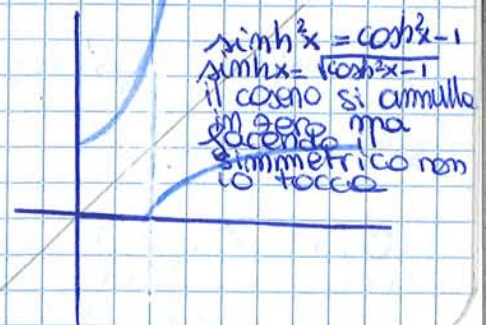 sinh²x = cosh²x-1
sinhx = √cosh²x-1
il coseno si annulla
in zero ma
facendo il
simmetrico non
lo tocco